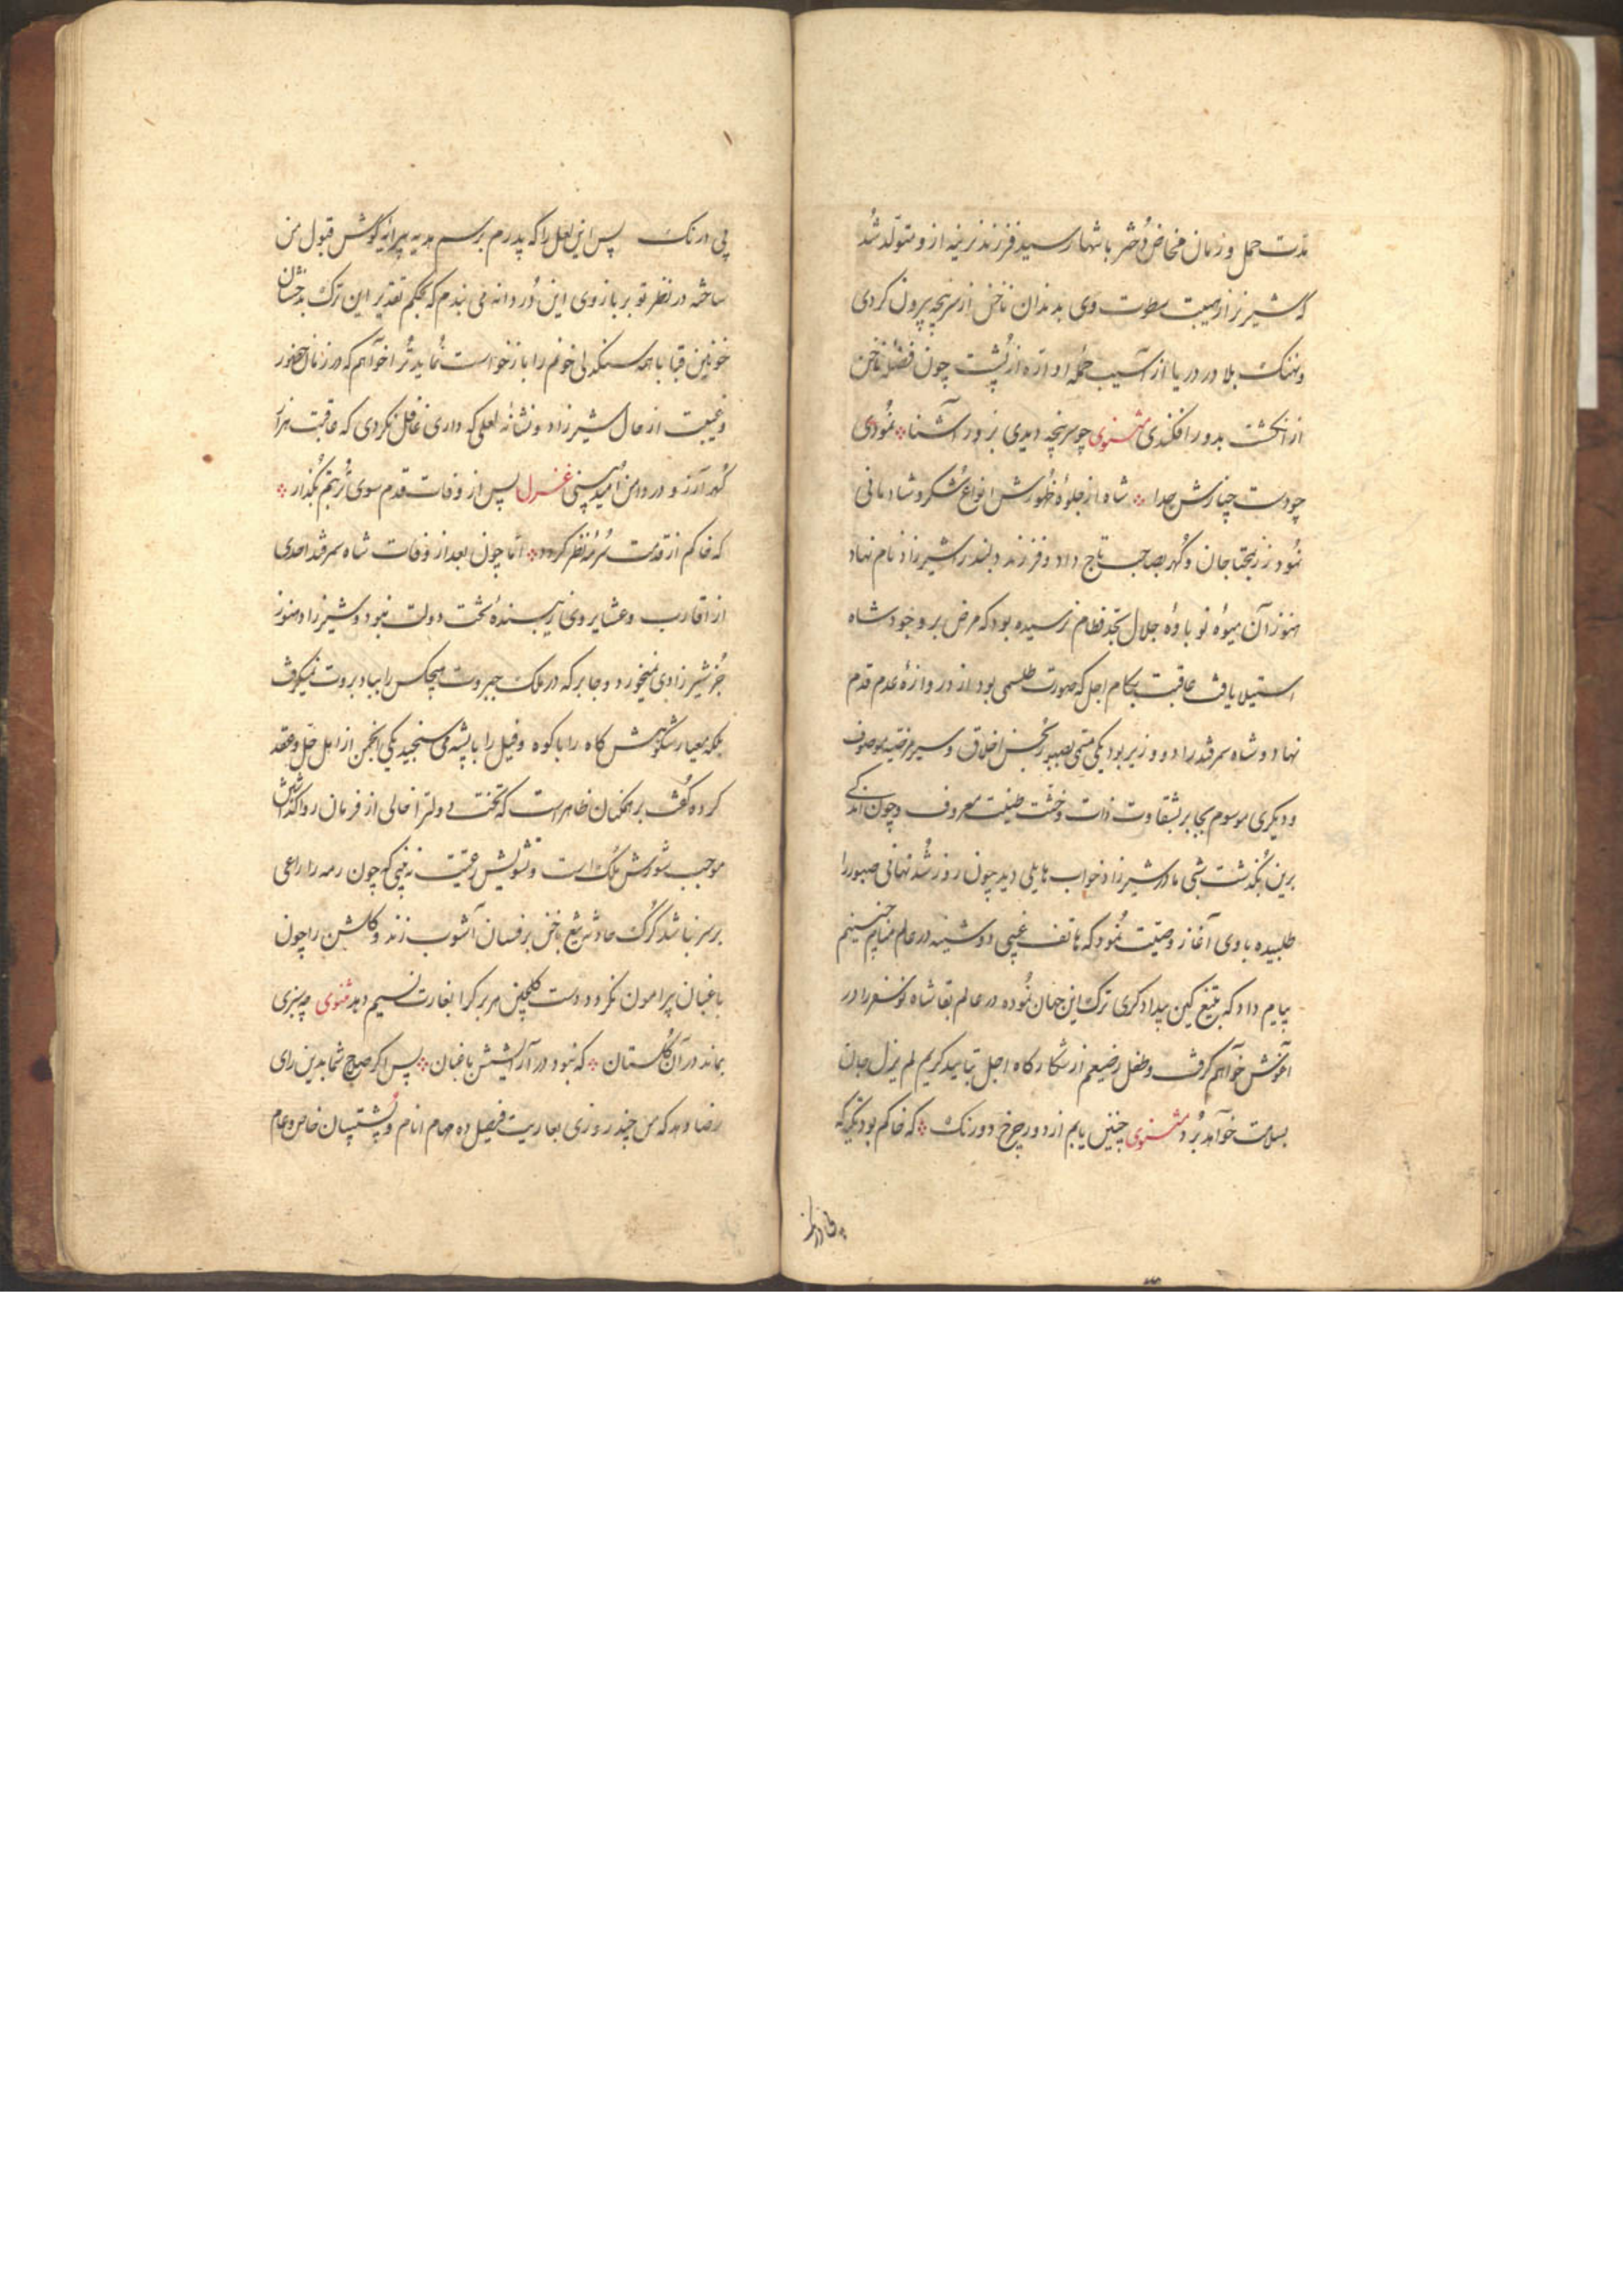 مدت حمل و زمان مخاض دختر بانتها رسید فرزند نرینه از و متولد شد
که شیر نر از هیبت سطوت وی بدندان ناخن از سرپنجه بیرون کردی
و نهنک بلا در دریا از آسیب حمله او اره از پشت چون فضله ناخن
از انکشت بدور افکندی مثنوی چو سرپنجه دیدی بزور آشنا نمودی
چو دست چنارش جدا شاه از جلوهٔ ظهورش انواع شکر و شادمانی
نمود زر بمحتاجان و کهر بصاحب تاج داد و فرزند دلبند را شیرزاد نام نهاد
هنوز آن میوهٔ نو باوهٔ جلال بحد فطام نرسیده بود که مرض بر وجود شاه
استیلا یافت عاقبت بکام اجل که صورت طلسمی بود از دروازهٔ عدم قدم
نهاد و شاه سمرقند را دو وزیر بود یکی مسمی بصبور بحسن اخلاق و سیر مرضیه موصوف
و دیکری موسوم بجابر بشقاوت ذات و خبث طینت معروف و چون اندکی
برین بکذشت شبی مادر شیرزاد خواب هایلی دید چون روز شد نهانی صبور را
طلبیده با وی آغاز وصیت نمود که هاتف غیبی دوشینه در عالم منامم چنین
پیام داد که بتیغ کین بیدادکری ترک این جهان نموده در عالم بقا شاه نوسفر را در
آغوش خواهم کرفت و طفل رضیعم از شکارکاه اجل بتایید کریم لم یزل جان
بسلامت خواهد برد مثنوی چنین یابم از دور چرخ دورنک که خاکم بود تکیه که
پی درنک پس این لعل را که پدرم برسم هدیه پیرایه کوش قبول من
ساخته در نظر تو بر بازوی این دردانه می بندم که بحکم تقدیر این ترک بدخشان
خونین قبا با همه سنکدلی خونم را بازخواست نماید ترا خواهم که در زمان حضور
و غیبت از حال شیرزاد و نشانهٔ لعلی که داری غافل نکردی که عاقبت هزار
کهر آرزو در دامن امید بینی غزل پس از وفات قدم سوی تربتم بکذار
که خاکم از قدمت سرمه نظر کردد اما چون بعد از وفات شاه سمرقند احدی
از اقارب و عشایر وی زیبندهٔ تخت دولت نبود و شیرزاد هنوز
جز شیر زادی نمیخورد و جابر که در ملک جبروت هیچکس را بباد بروت نمیکرفت
بلکه بمعیار شکوهش کاه را با کوه و فیل را با پشه می سنجید یکی انجمن از اهل حل و عقد
کرده کفت بر همکنان ظاهر است که تخت دولت را خالی از فرمان روا کذاشتن
موجب شورش ملک است و تشویش رعیت نه بینی که چون رمه را راعی
بر سر نباشد کرک حادثه تیغ ناخن بر فسان آشوب زند و کلشن را چون
باغبان پیرامون نکردد دست کلچین هر برک را بغارت نسیم دهد مثنوی چه سبزی
بماند در آن کلستان که نبود در آرایشش باغبان پس اکر صلاح شما بدین رای
رضا دهد که من چند روزی بعاریت فیصل ده مهام انام و پشتیبان خاص و عام